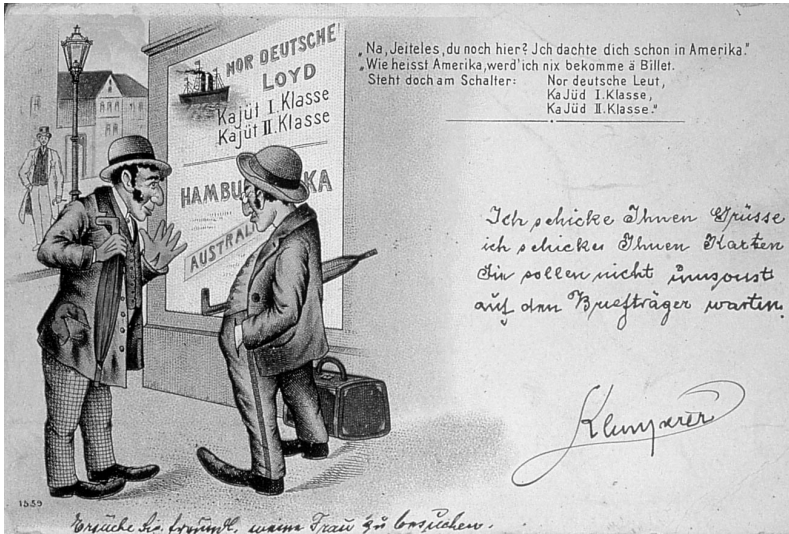 NOR DEUTSCHE
LOYD
Kajüt I. Klasse
Kajüt II. Klasse
HAMBU KA
AUSTRAL
„Na, Jeiteles, du noch hier? Jch dachte dich schon in Amerika.“
„Wie heisst Amerika, werd' ich nix bekomme ä Billet.
Steht doch am Schalter: Nor deutsche Leut,
KaJüd I. Klasse,
KaJüd II. Klasse.“
Ich schicke Ihnen Grüsse
ich schicke Ihnen Karten
Sie sollen nicht umsonst
auf den Briefträger warten.
1559
Ersuche Sie freundl. meine Frau zu besuchen.